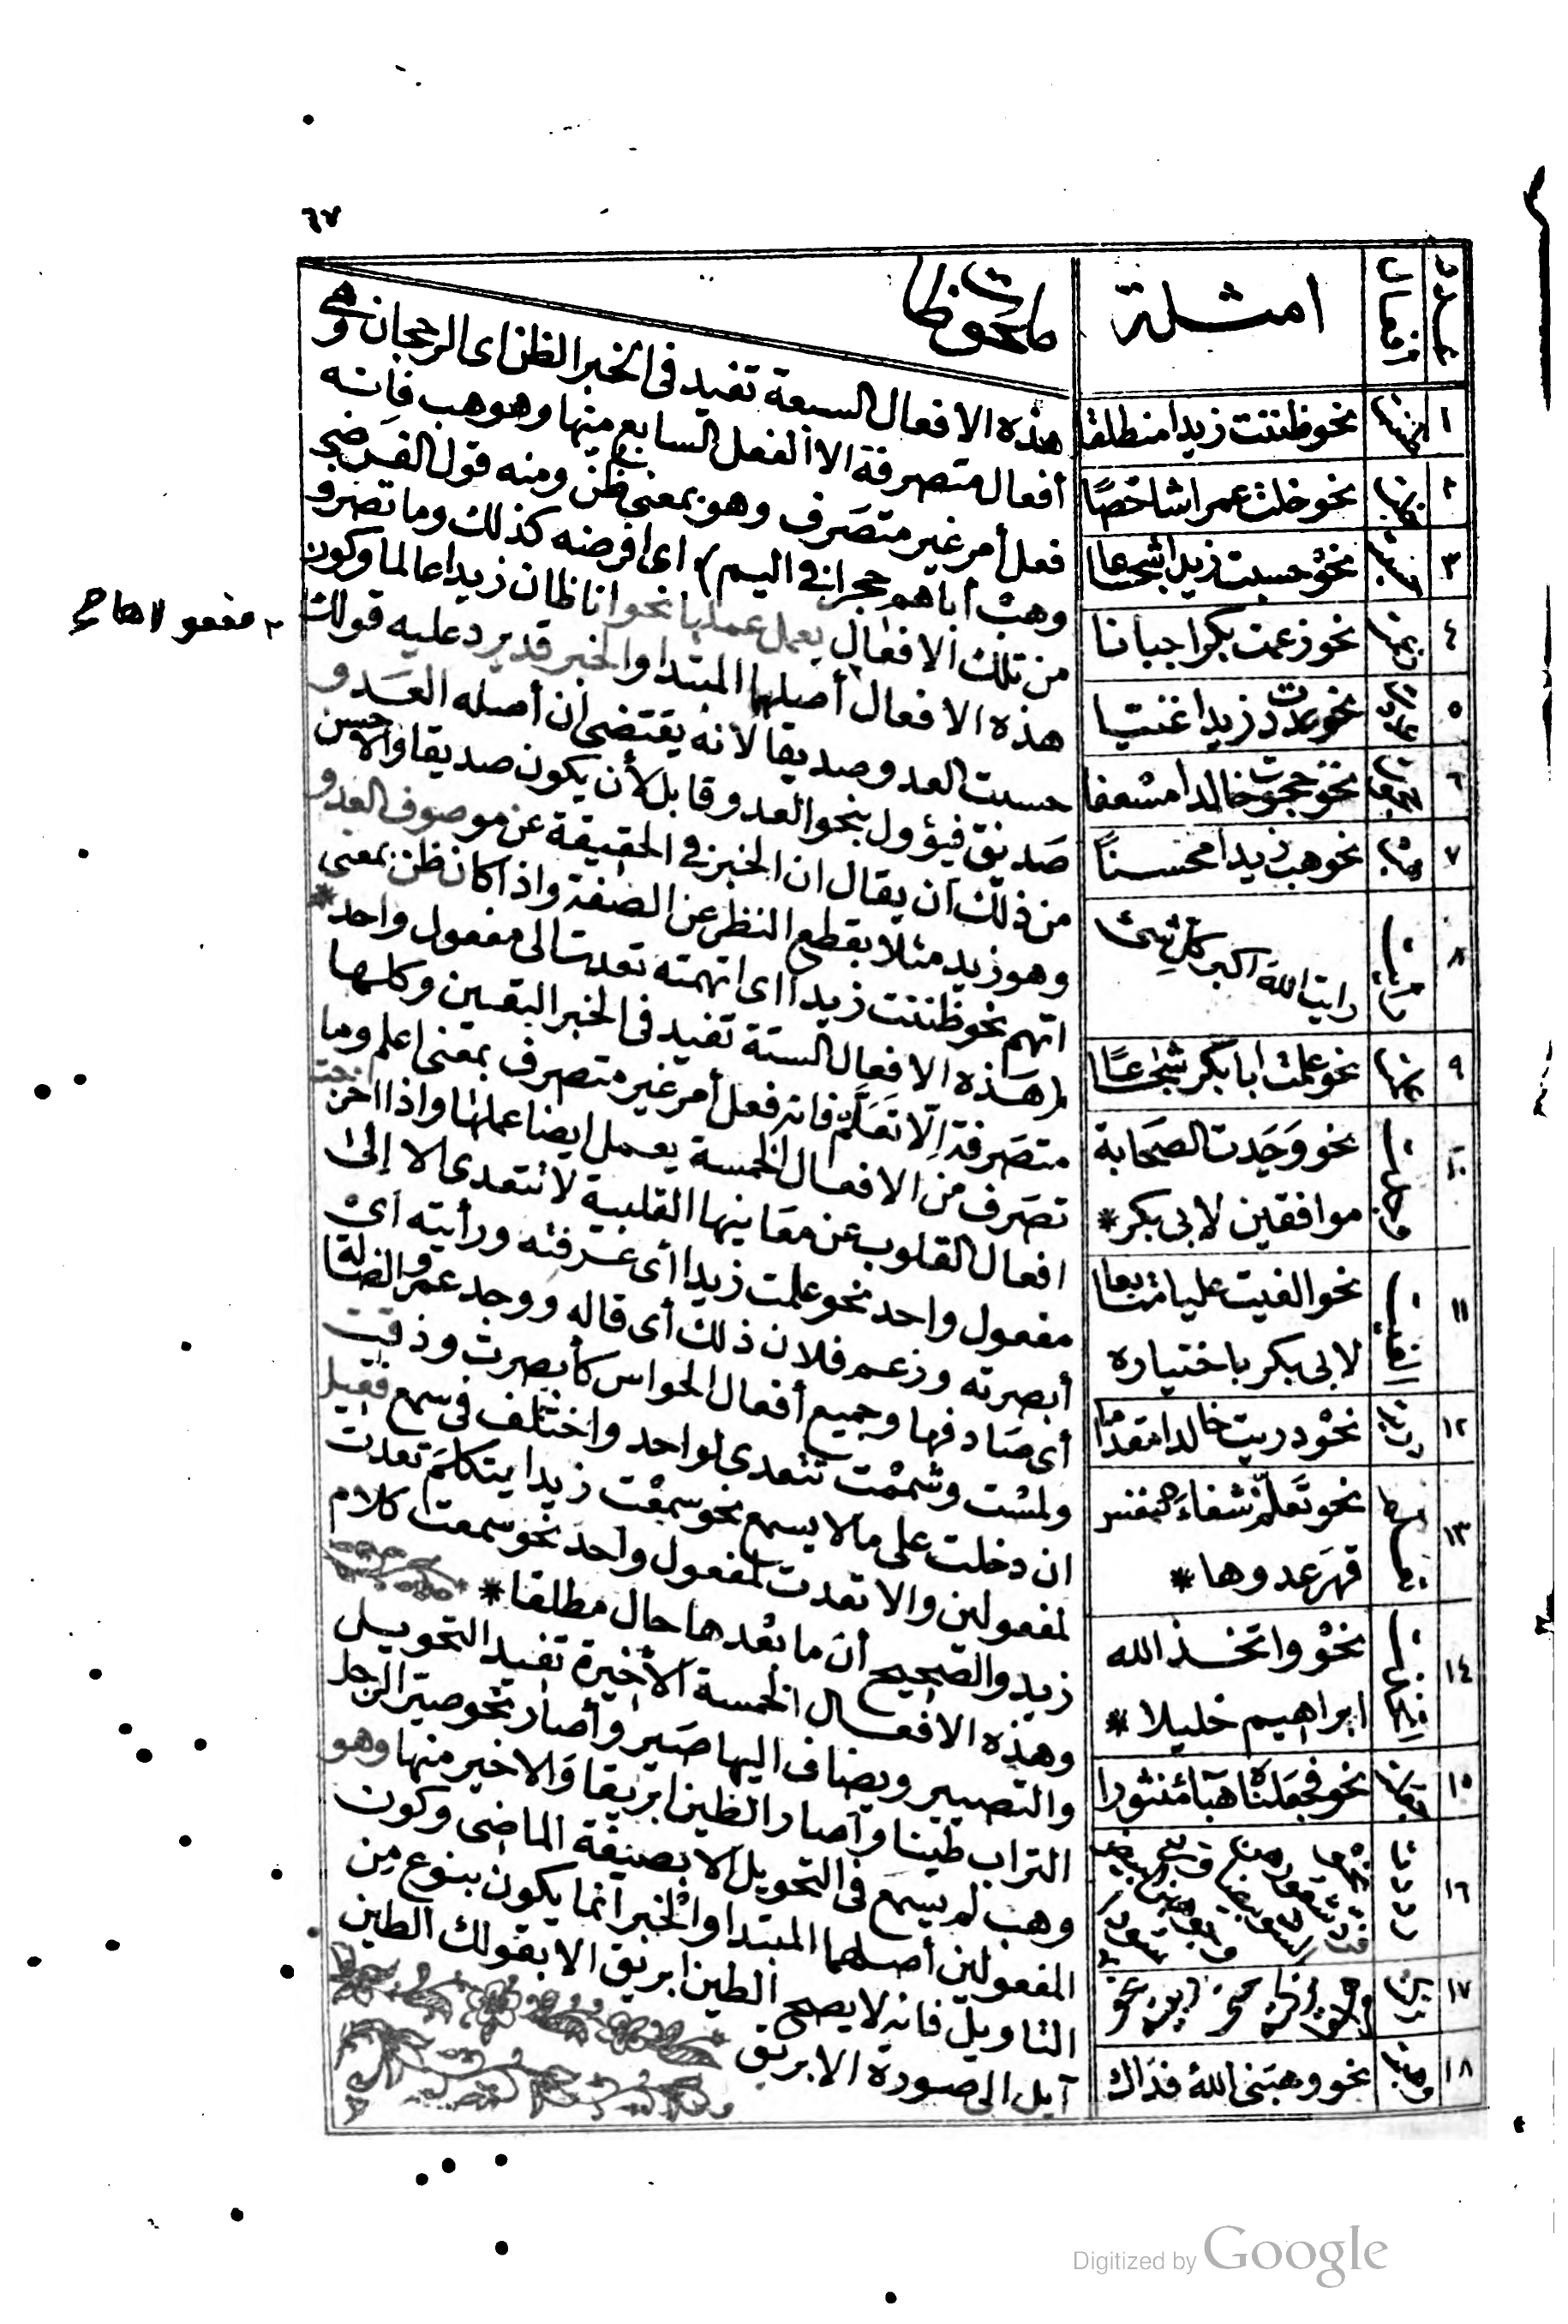 ٦٧
عدد
افعال
امثلة
ملحوظات
١
ظننت
نحو ظننت زيدا منطلقا
٢
خلت
نحو خلت عمرا شاخصًا
٣
حسبت
نحو حسبت زيدا شجاعا
٤
زعمت
نحو زعمت بكرا جبانا
٥
عددت
نحو عددت زيدا غنيا
٦
حجوت
نحو حجوت خالدا مسعفا
٧
هب
نحو هب زيدا محسنًا
٨
رأيت
رايت الله اكبر كل شئ
٩
علمت
نحو علمت ابا بكر شجاعًا
١٠
وجدت
نحو وَجَدت الصحَابة
موافقين لابى بكر *
١١
الفيت
نحو الفيت عليا متابعا
لابى بكر باختياره
١٢
دريت
نحو دريت خالدا مقداما
١٣
تعلم
نحو تَعلمْ شفاءَ النفس
قهرَ عدوها *
١٤
اتخذت
نحو واتخذ الله
ابراهيم خليلا *
١٥
جعلت
نحو فجعلناه هَبآءً منثورا
١٦
رددنا
١٧
ترك
١٨
وهب
نحو وهبنى اللهُ فدَاك
هذه الافعال السبعة تفيد فى الخبر الظن اى الرجحان وهى
أفعال متصرفة الا الفعل السابع منها وهو هب فانه
فعل أمر غير متصَرف وهو بمعنى ظُنّ ومنه قول الفرضى
وهبْ أباهم حجرا فى اليم) اى افرضه كذلك وما تصرف
من تلك الافعال يعمل عملها نحو انا ظان زيدا عالما وكون
هذه الافعال أصلها المبتدا والخبر قد يرد عليه قولك
حسبت العدو صديقا لأنه يقتضى أن أصله العَدو
صَديق فيؤول بنحو العدو قابل لأن يكون صديقا والاحسن
من ذلك أن يقال ان الخبر فى الحقيقة عن موصوف العدو
وهو زيد مثلا بقطع النظر عن الصفة واذا كان ظن بمعنى
اتهم نحو ظننت زيدا اى اتهمته تعدت الى مفعول واحد *
(هَذه الافعال الستة تفيد فى الخبر اليقين وكلها
متصَرفة اِلّا تَعَلَّمْ فانه فعل أمر غير متصرف بمعنى اعلم وما
تصَرف من الافعال الخمسة يعمل ايضا عملها واذا اخرجت
افعال القلوب عن معَانيها القلبية لا تتعدى الا إلى
مفعول واحد نحو علمت زيدا أى عَرفته ورأيته أىْ
أبصرته وزعم فلان ذلك أى قاله ووجد عمرو الضالة
أى صَادفها وجميع أفعال الحواس كأبصرت وذقت
ولمسْت وشممْت تتعدى لواحد واختلف فى سمع فقيل
ان دخلت على ما لا يسمع نحو سمعْت زيدا يتكلمُ تعدت
لمفعولين والا تعدت لمفعول واحد نحو سمعت كلام
زيد والصحيح أن ما بعْدها حال مطلقا *
وهذه الافعال الخمسة الأخيرة تفيد التحويل
والتصيير ويضاف اليها صَير وأصار نحو صير الرجل
التراب طينا وأصار الطين ابريقا وَالاخير منها وهو
وهب لم يسمع فى التحويل الا بصيغة الماضى وكون
المفعولين أصلهما المبتدا والخبر انما يكون بنوع مِن
التاويل فانه لا يصح الطين ابريق الا بقولك الطين
آيل الى صورة الابريق
Digitized by Google